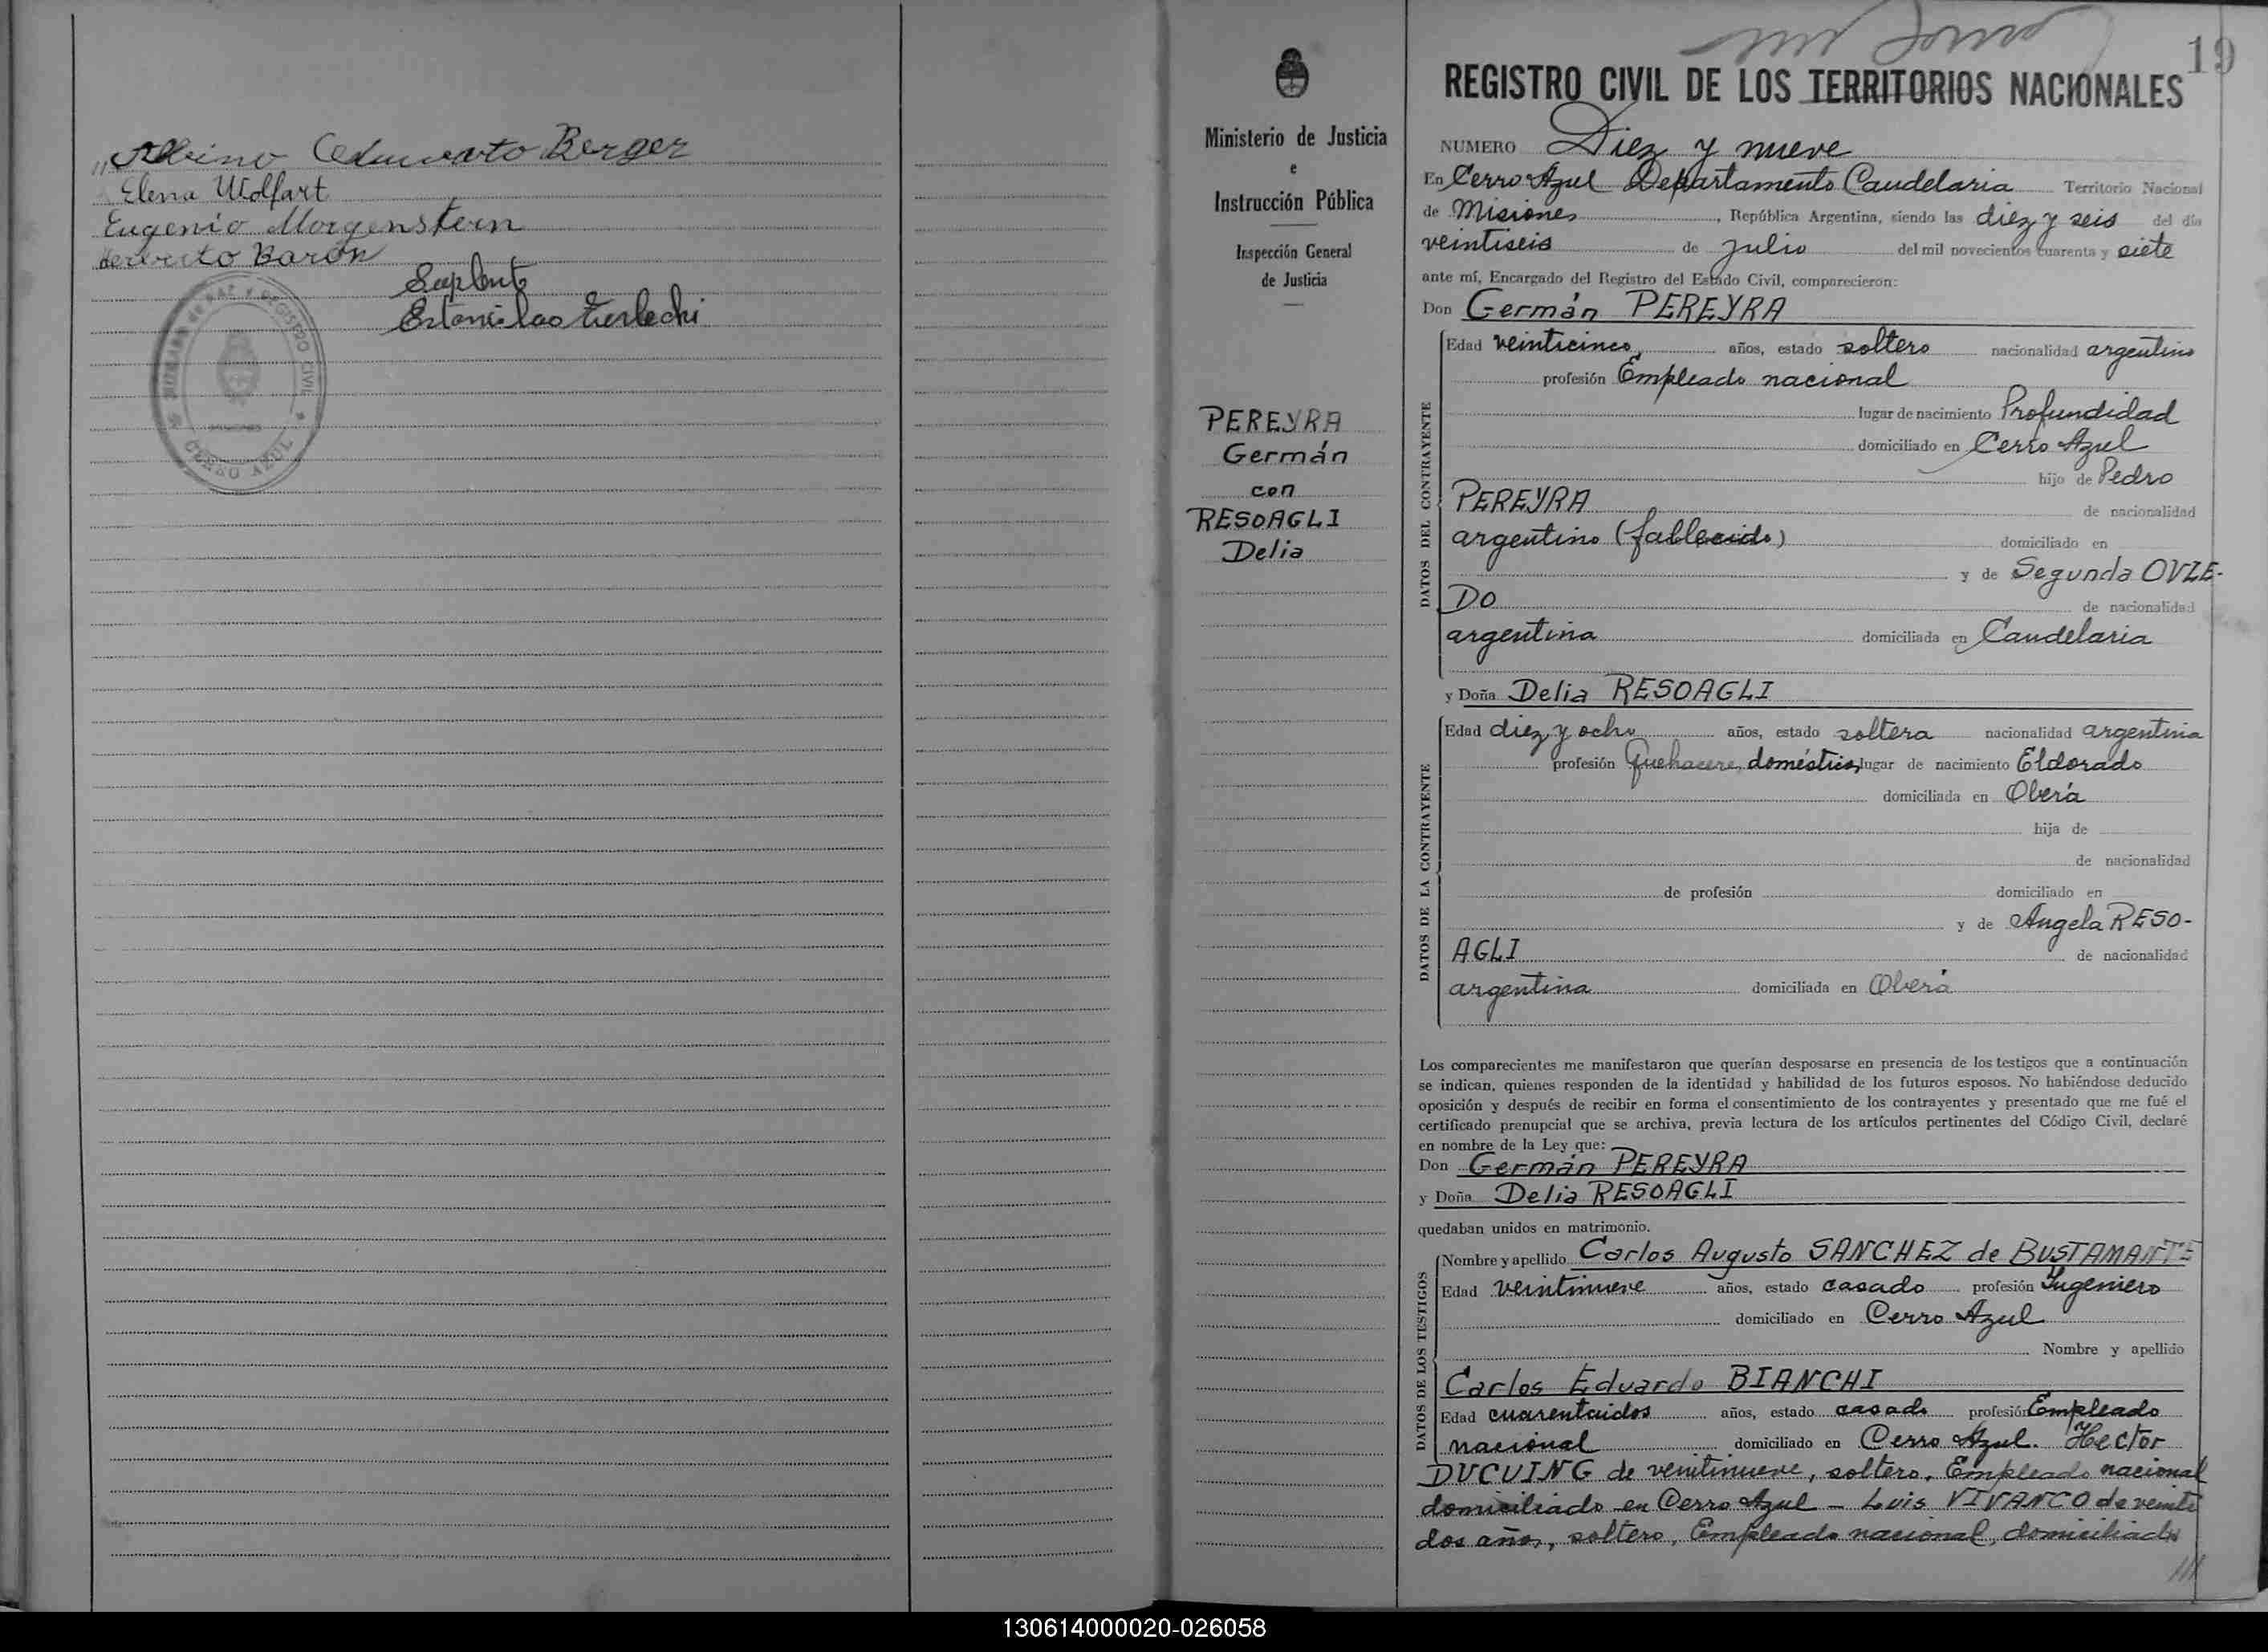 Albino Eduardo Berger
Elena Wolfart
Eugenio Morgenstern
Heriberto Baron
Suplente
Estanislao
REGISTRO CIVIL
CERRO AZUL
Ministerio de Justicia
e
Instrucción Pública
Inspección General
de Justicia
PEREYRA
Germán
con
RESOAGLI
Delia
19
REGISTRO CIVIL DE LOS TERRITORIOS NACIONALES
NUMERO Diez y nueve
En Cerro Azul Departamento Candelaria Territorio Nacional
de Misiones, República Argentina, siendo las diez y seis del día
veintiseis de julio del mil novecientos cuarenta y siete
ante mí, Encargado del Registro del Estado Civil, comparecieron:
Don Germán PEREYRA
DATOS DEL CONTRAYENTE
Edad veinticinco años, estado soltero nacionalidad argentino
profesión Empleado nacional
lugar de nacimiento Profundidad
domiciliado en Cerro Azul
hijo de Pedro
PEREYRA de nacionalidad
argentino (fallecido) domiciliado en
y de Segunda OVIE-
DO de nacionalidad
argentina domiciliada en Candelaria
y Doña Delia RESOAGLI
DATOS DE LA CONTRAYENTE
Edad diez y ocho años, estado soltera nacionalidad argentina
profesión Quehaceres domésticos lugar de nacimiento Eldorado
domiciliada en Oberá
hija de
de nacionalidad
de profesión domiciliado en
y de Angela RESO-
AGLI de nacionalidad
argentina domiciliada en Oberá
Los comparecientes me manifestaron que querían desposarse en presencia de los testigos que a continuación
se indican, quienes responden de la identidad y habilidad de los futuros esposos. No habiéndose deducido
oposición y después de recibir en forma el consentimiento de los contrayentes y presentado que me fué el
certificado prenupcial que se archiva, previa lectura de los artículos pertinentes del Código Civil, declaré
en nombre de la Ley que:
Don Germán PEREYRA
y Doña Delia RESOAGLI
quedaban unidos en matrimonio.
DATOS DE LOS TESTIGOS
Nombre y apellido Carlos Augusto SANCHEZ de BUSTAMANTE
Edad veintinueve años, estado casado profesión Ingeniero
domiciliado en Cerro Azul
Nombre y apellido
Carlos Eduardo BIANCHI
Edad cuarentaidos años, estado casado profesión Empleado
nacional domiciliado en Cerro Azul. Hector
DUCUING de veintinueve, soltero, Empleado nacional
domiciliado en Cerro Azul - Luis VIVANCO de veinte
dos años, soltero, Empleado nacional, domiciliado
///
130614000020-026058